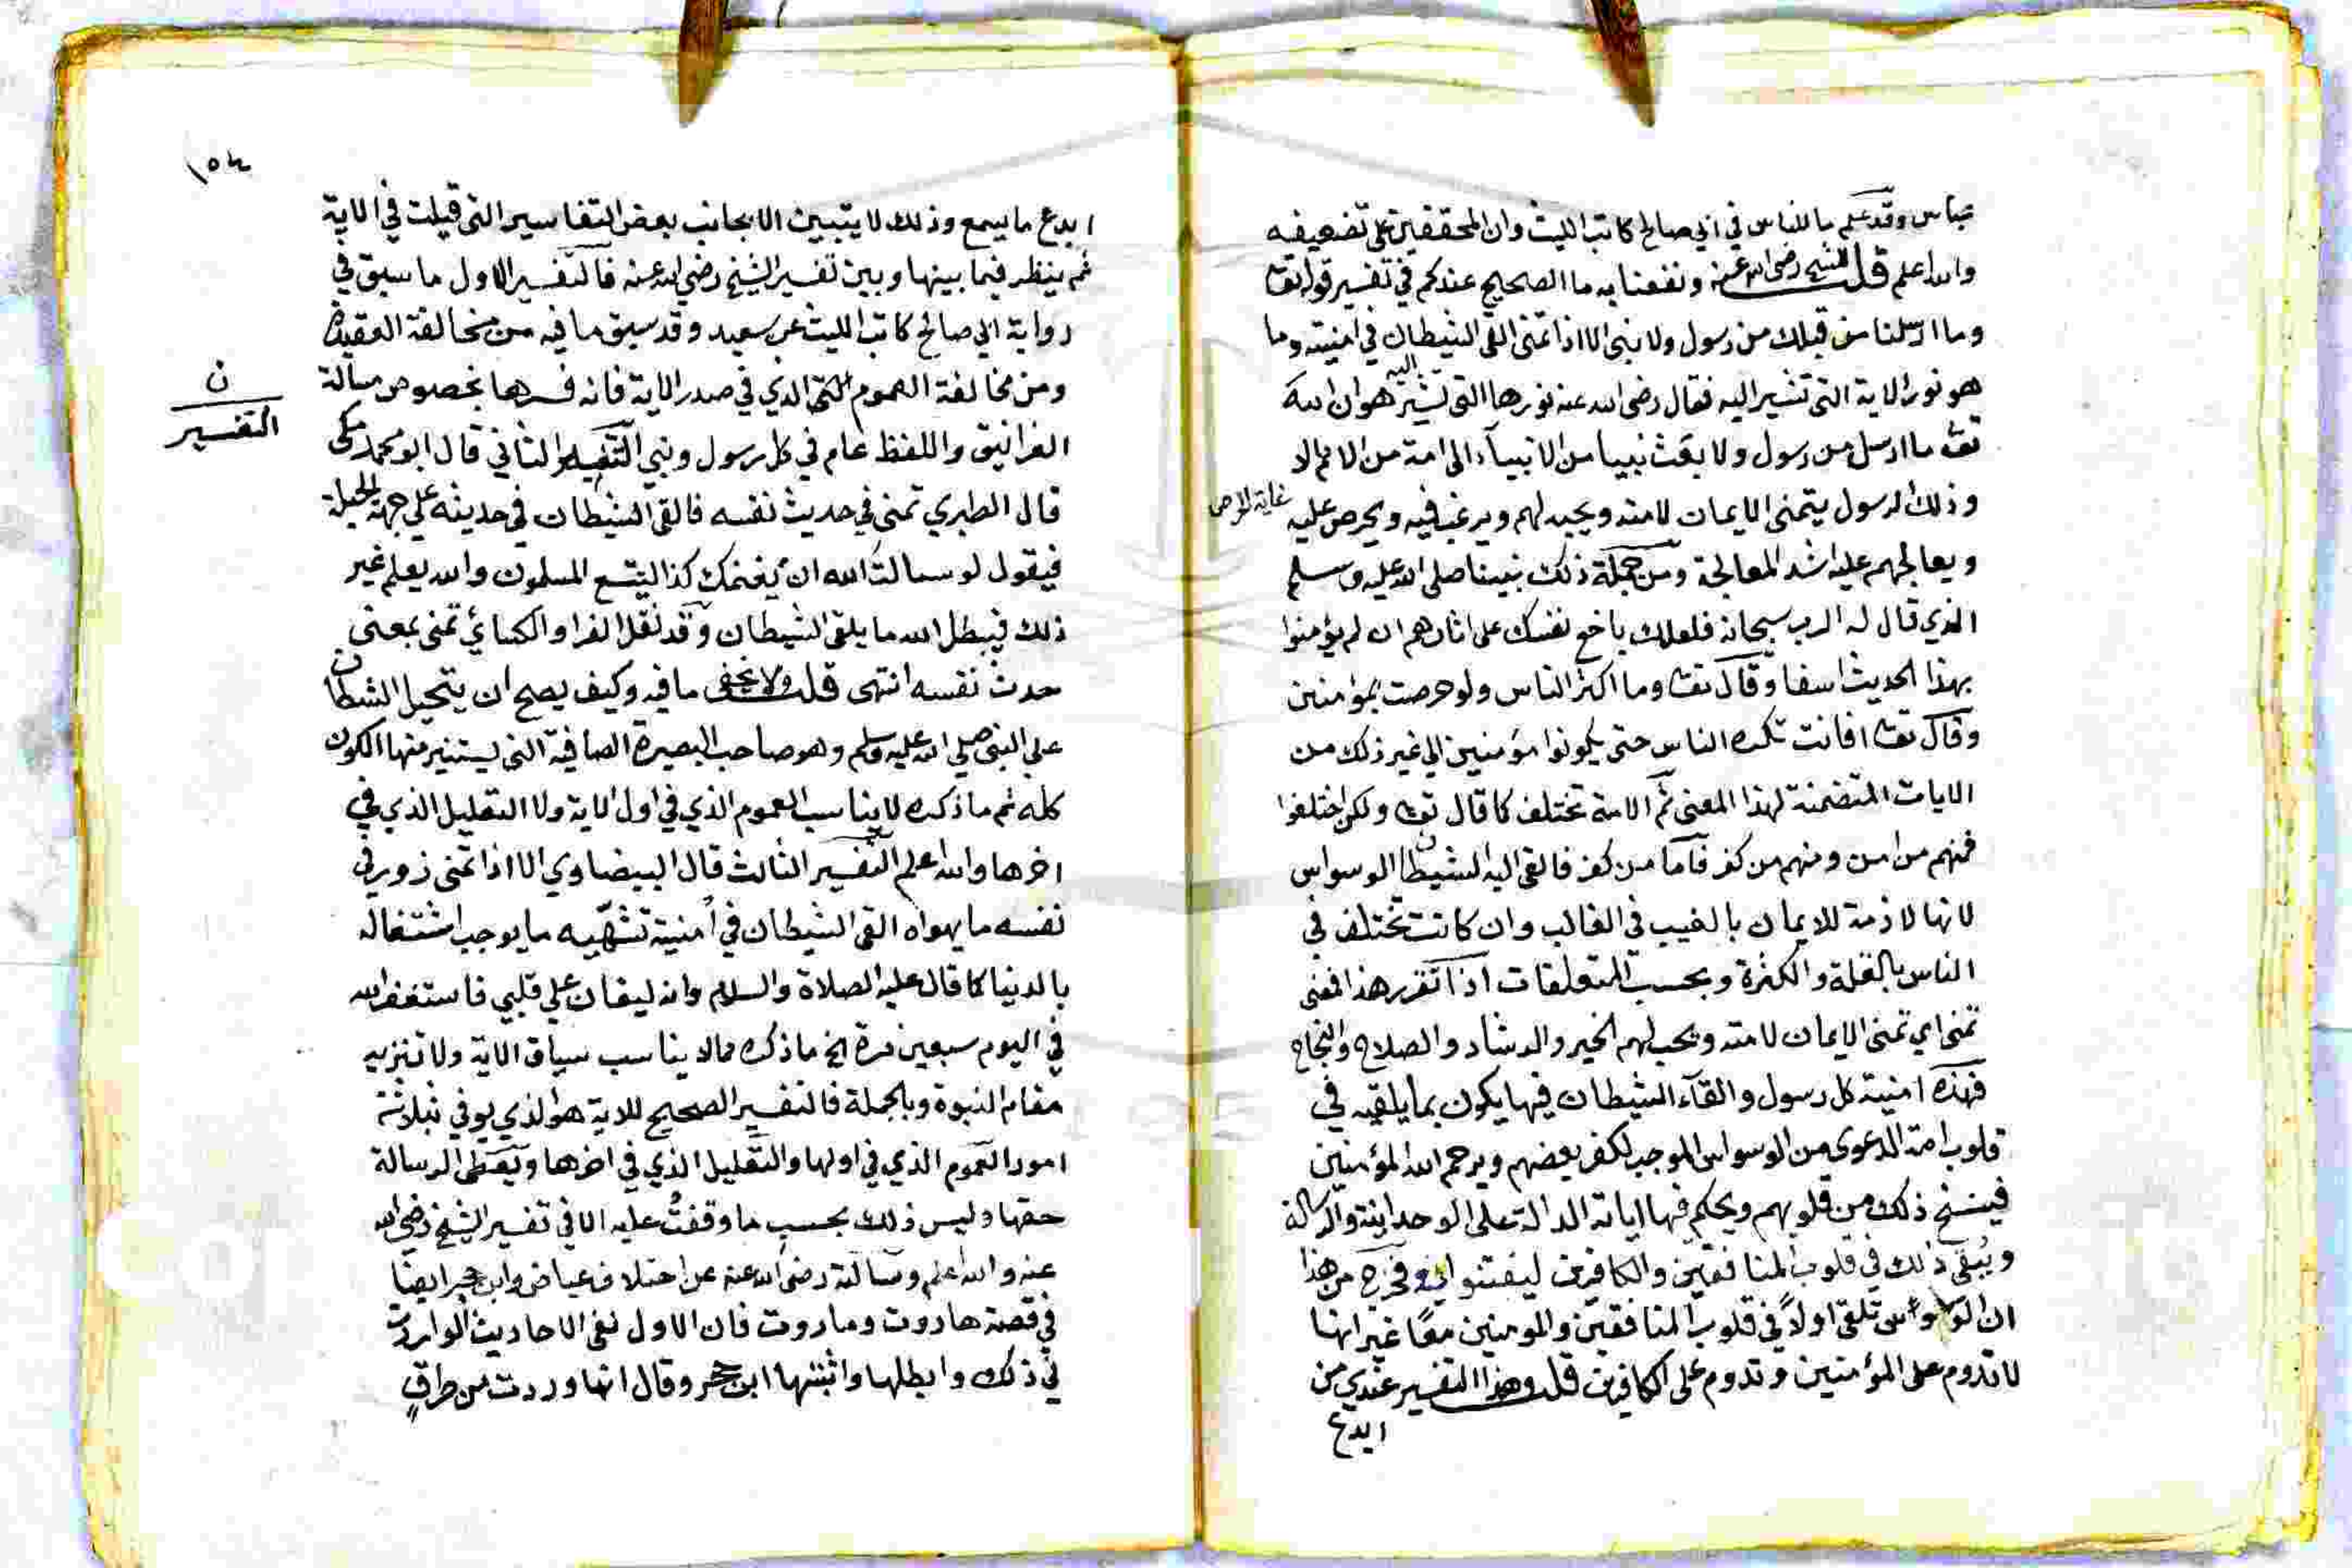 عباس وقد علم ما للناس في ابي صالح كاتب الليث وان المحققين على تضعيفه
والله اعلم قلت للشيخ رضي الله عنه ونفعنا به ما الصحيح عندكم في تفسير قوله تعا
وما ارسلنا من قبلك من رسول ولا نبي الا اذا تمنى القى الشيطان في امنيته وما
هو نور الاية التي تشير اليه فقال رضي الله عنه نورها التي تشير اليه هو ان الله
تعا ما ارسل من رسول ولا بعث نبيا من الانبيآء الى امة من الامم الا
وذلك الرسول يتمنى الايمان لامته ويحبه لهم ويرغب فيه ويحرص عليه غاية الحرص
ويعالجهم عليه اشد المعالجة ومن جملة ذلك نبينا صلى الله عليه وسلم
الذي قال له الرب سبحانه فلعلك باخع نفسك على اثارهم ان لم يؤمنوا
بهذا الحديث اسفا وقال تعا وما اكثر الناس ولو حرصت بمؤمنين
وقال تعا افانت تكره الناس حتى يكونوا مؤمنين الي غير ذلك من
الايات المتضمنة لهذا المعنى ثم الامة تختلف كما قال تعا ولكن اختلفوا
فمنهم من امن ومنهم من كفر فاما من كفر فالقى اليه الشيطان الوسواس
لانها لازمة للايمان بالغيب في الغالب وان كانت تختلف في
الناس بالقلة والكثرة وبحسب المتعلقات اذا تقرر هذا فمعنى
تمنى اي تمنى الايمان لامته ويحب لهم الخير والرشاد والصلاح والنجاح
فهذه امنية كل رسول والقآء الشيطان فيها يكون بما يلقيه في
قلوب امة الدعوى من الوسواس الموجب لكفر بعضهم ويرحم الله المؤمنين
فينسخ ذلك من قلوبهم ويحكم فيها اياته الدالة على الوحدانية والرسالة
ويبقي ذلك في قلوب المنافقين والكافرين ليفتتنوا به فخرج من هذا
ان الوسواس تلقى اولاً في قلوب المنافقين والمومنين معًا غير انها
لا تدوم على المؤمنين وتدوم على الكافرين قلت وهذا التفسير عندي من
ابدع
١٥٤
ابدع ما يسمع وذلك لا يتبين الا بجانب بعض التفاسير التي قيلت في الاية
ثم ينظر فيما بينها وبين تفسير الشيخ رضي الله عنه فالتفسير الاول ما سبق في
رواية ابي صالح كاتب الليث عن سعيد وقد سبق ما فيه من مخالفة العقيدة
ومن مخالفة العموم الذي في صدر الاية فانه فسرها بخصوص مسالة
الغرانيق واللفظ عام في كل رسول ونبي التفسير الثاني قال ابو محمد مكي
ن
التفسير
قال الطبري تمنى في حديث نفسه فالقى الشيطان في حديثه علي جهة الحيلة
فيقول لو سالت الله ان يغنمك كذا ليتسع المسلمون والله يعلم غير
ذلك فيبطل الله ما يلقى الشيطان وقد نقل الفرا والكسائي تمنى بمعنى
حدث نفسه انتهى قلت ولا يخفى ما فيه وكيف يصح ان يتحيل الشيطان
علي النبي صلي الله عليه وسلم وهو صاحب البصيرة الصافية التي يستنير منها الكون
كله ثم ما ذكره لا يناسب العموم الذي في اول الاية ولا التعليل الذي في
اخرها والله اعلم التفسير الثالث قال البيضاوي الا اذا تمنى زور في
نفسه ما يهواه القى الشيطان في اُمنيته تشهّيه ما يوجب اشتغاله
بالدنيا كما قال عليه الصلاة والسلام وانه ليغان علي قلبي فاستغفر الله
في اليوم سبعين مرة الخ ما ذكره مما لا يناسب سياق الاية ولا تنزيه
مقام النبوة وبالجملة فالتفسير الصحيح للاية هو الذي يوفي بثلاثة
امور العموم الذي في اولها والتعليل الذي في اخرها ويعطى الرسالة
حقها وليس ذلك بحسب ما وقفتُ عليه الا في تفسير الشيخ رضي الله
عنه والله اعلم وسالته رضى الله عنه عن اختلاف عياض وابن حجر ايضًا
في قصة هاروت وماروت فان الاول نفى الاحاديث الواردت
في ذلك وابطلها واثبتها ابن حجر وقال انها وردت من طرقٍ